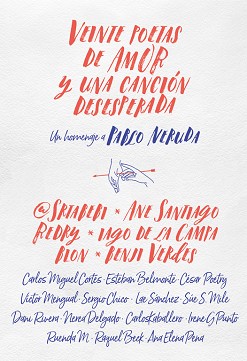 VEINTE POETAS
DE AMOR
Y UNA CANCIÓN
DESESPERADA
Un homenaje a PABLO NERUDA
@SRTABEBI * ANE SANTIAGO
REDRY * IAGO DE LA CAMPA
DION * BENJI VERDES
Carlos Miguel Cortés · Esteban Belmonte · César Poetry
Víctor Mengual · Sergio Chico · Lae Sánchez · Sue S. Mile
Dani Rivera · Nerea Delgado · Carlos Kaballero · Irene G Punto
Ruenda M · Raquel Beck · Ana Elena Pena